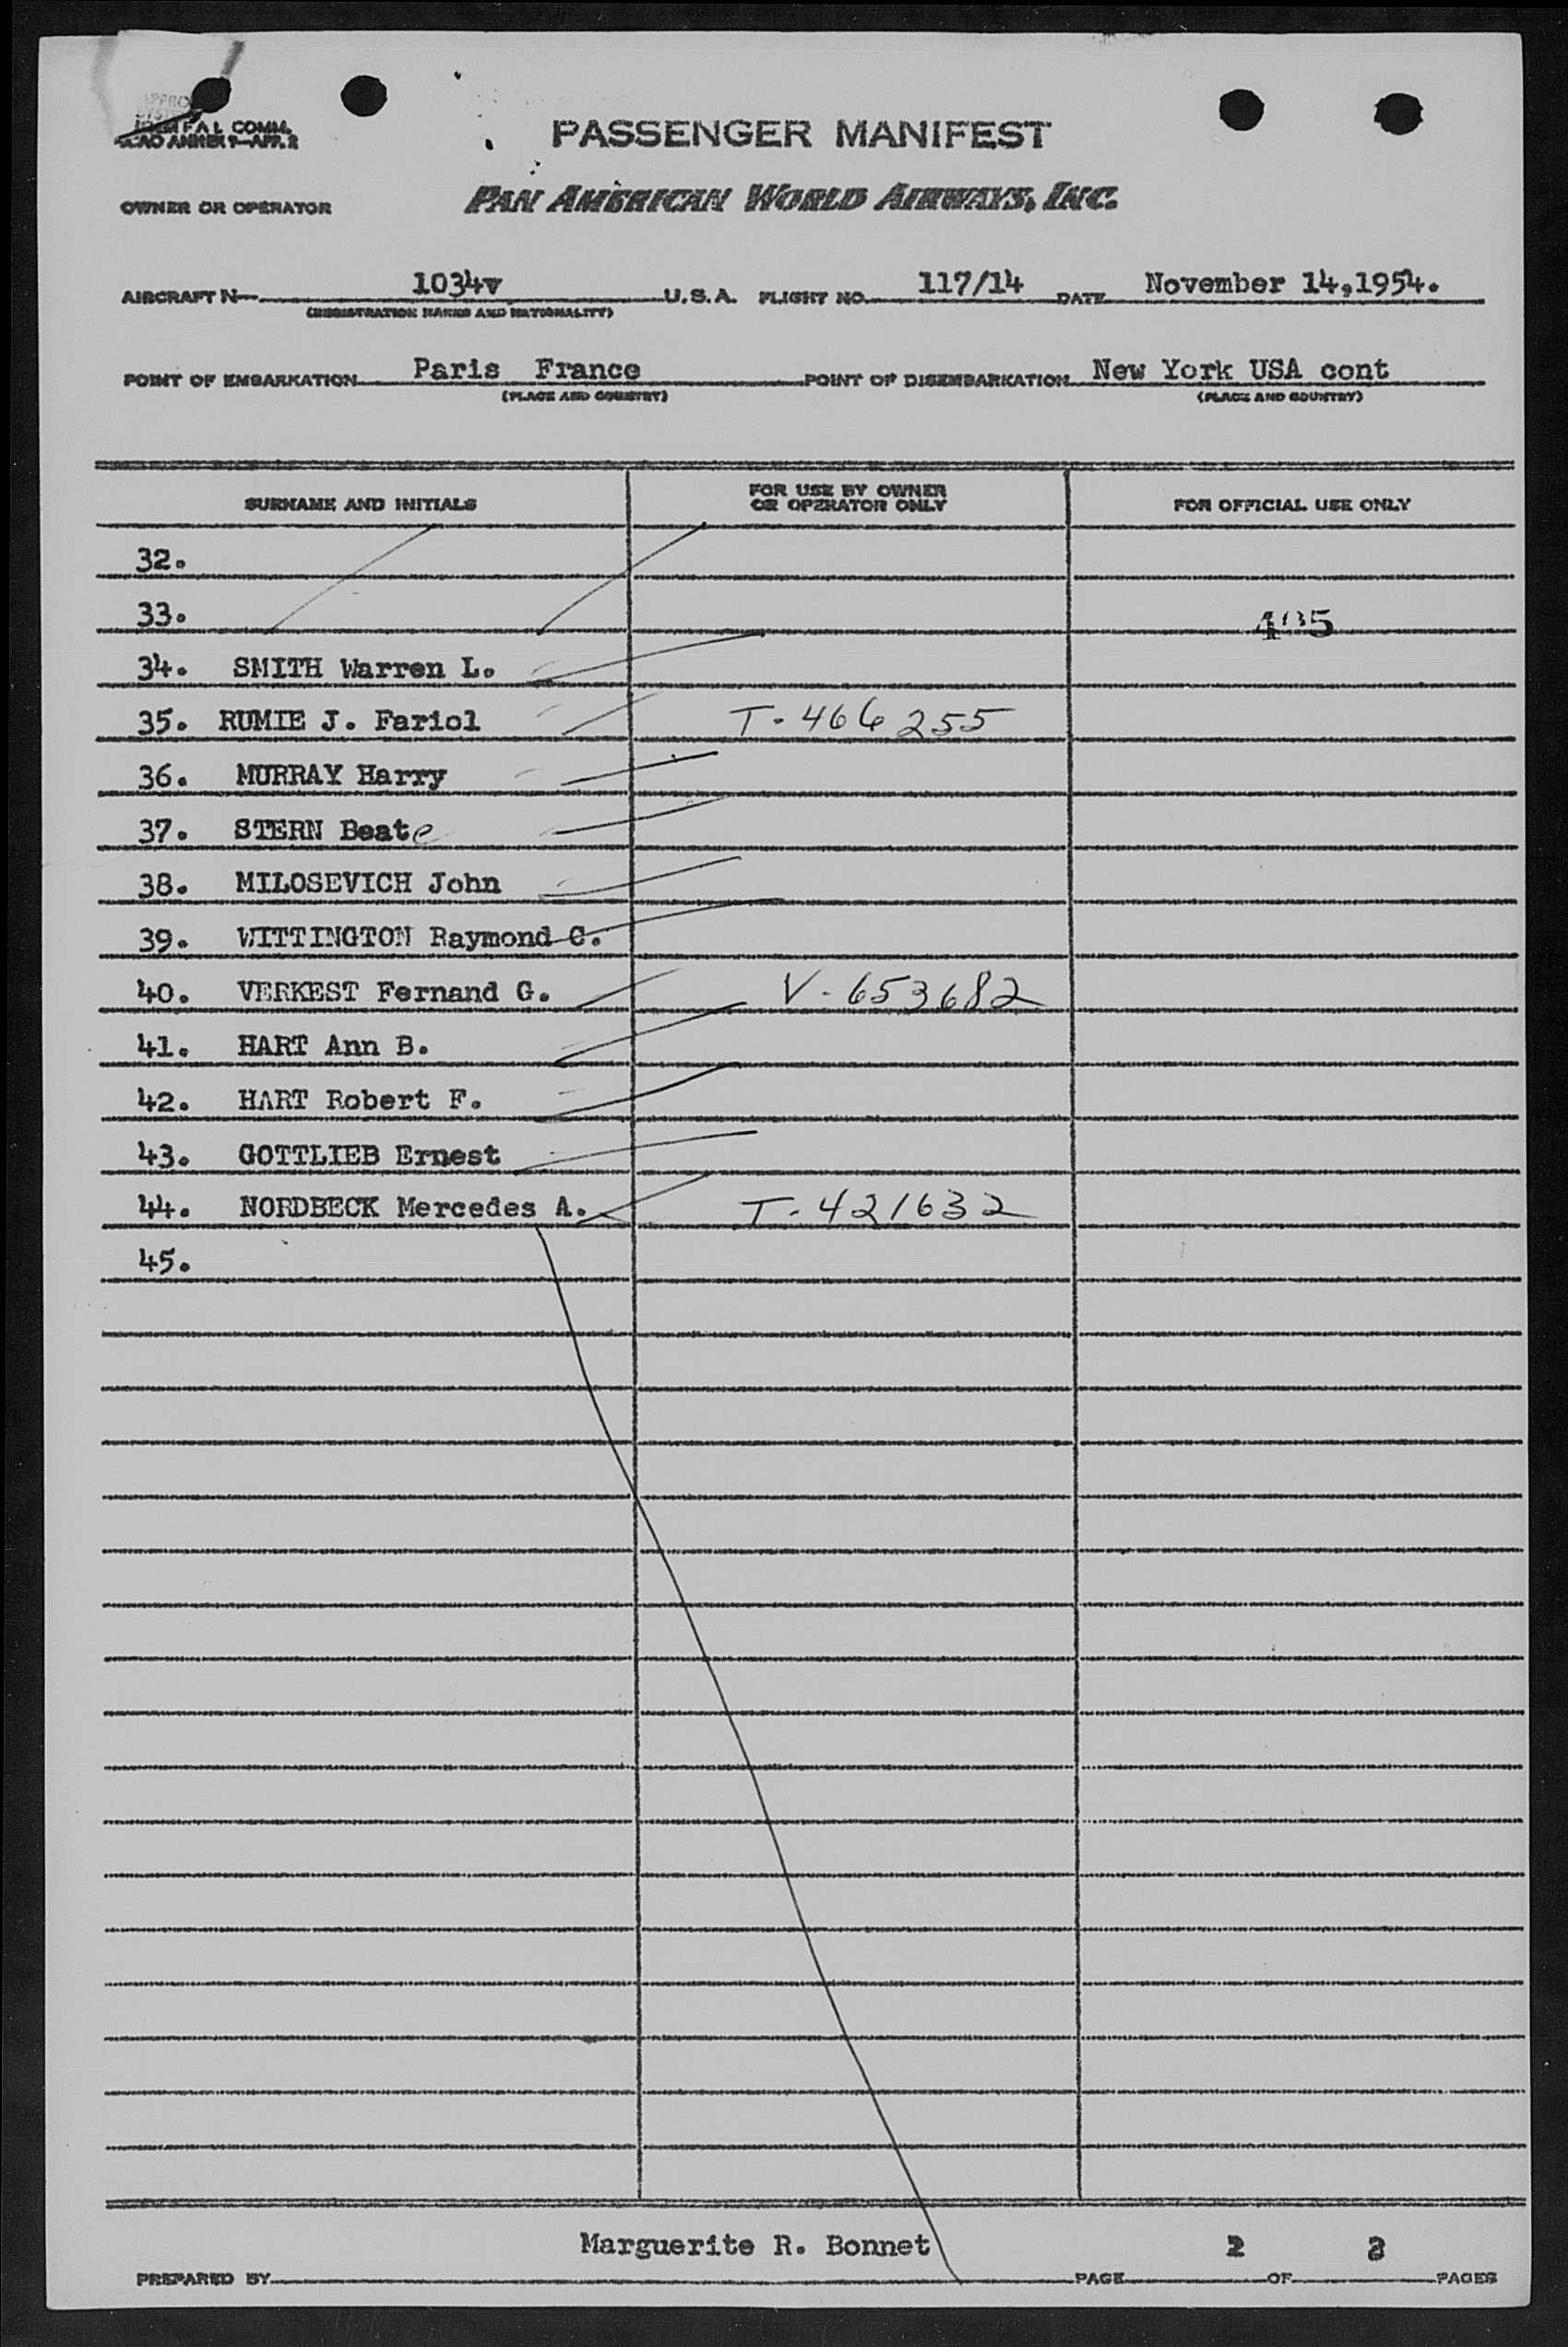 FAL COMM.
ICAO ANNEX 9-APP. 2
PASSENGER MANIFEST
OWNER OR OPERATOR PAN AMERICAN WORLD AIRWAYS, INC.
AIRCRAFT N 1034v U.S.A. FLIGHT NO. 117/14 DATE November 14,1954.
(REGISTRATION MARKS AND NATIONALITY)
POINT OF EMBARKATION Paris France POINT OF DISEMBARKATION New York USA cont
(PLACE AND COUNTRY) (PLACE AND COUNTRY)
SURNAME AND INITIALS FOR USE BY OWNER OR OPERATOR ONLY FOR OFFICIAL USE ONLY
32.
33.
34. SMITH Warren L.
35. RUMIE J. Fariol T-466255
36. MURRAY Harry
37. STERN Beate
38. MILOSEVICH John
39. WITTINGTON Raymond C.
40. VERKEST Fernand G. V-653682
41. HART Ann B.
42. HART Robert F.
43. GOTTLIEB Ernest
44. NORDBECK Mercedes A. T-421632
45.
Marguerite R. Bonnet
PREPARED BY PAGE 2 OF PAGES